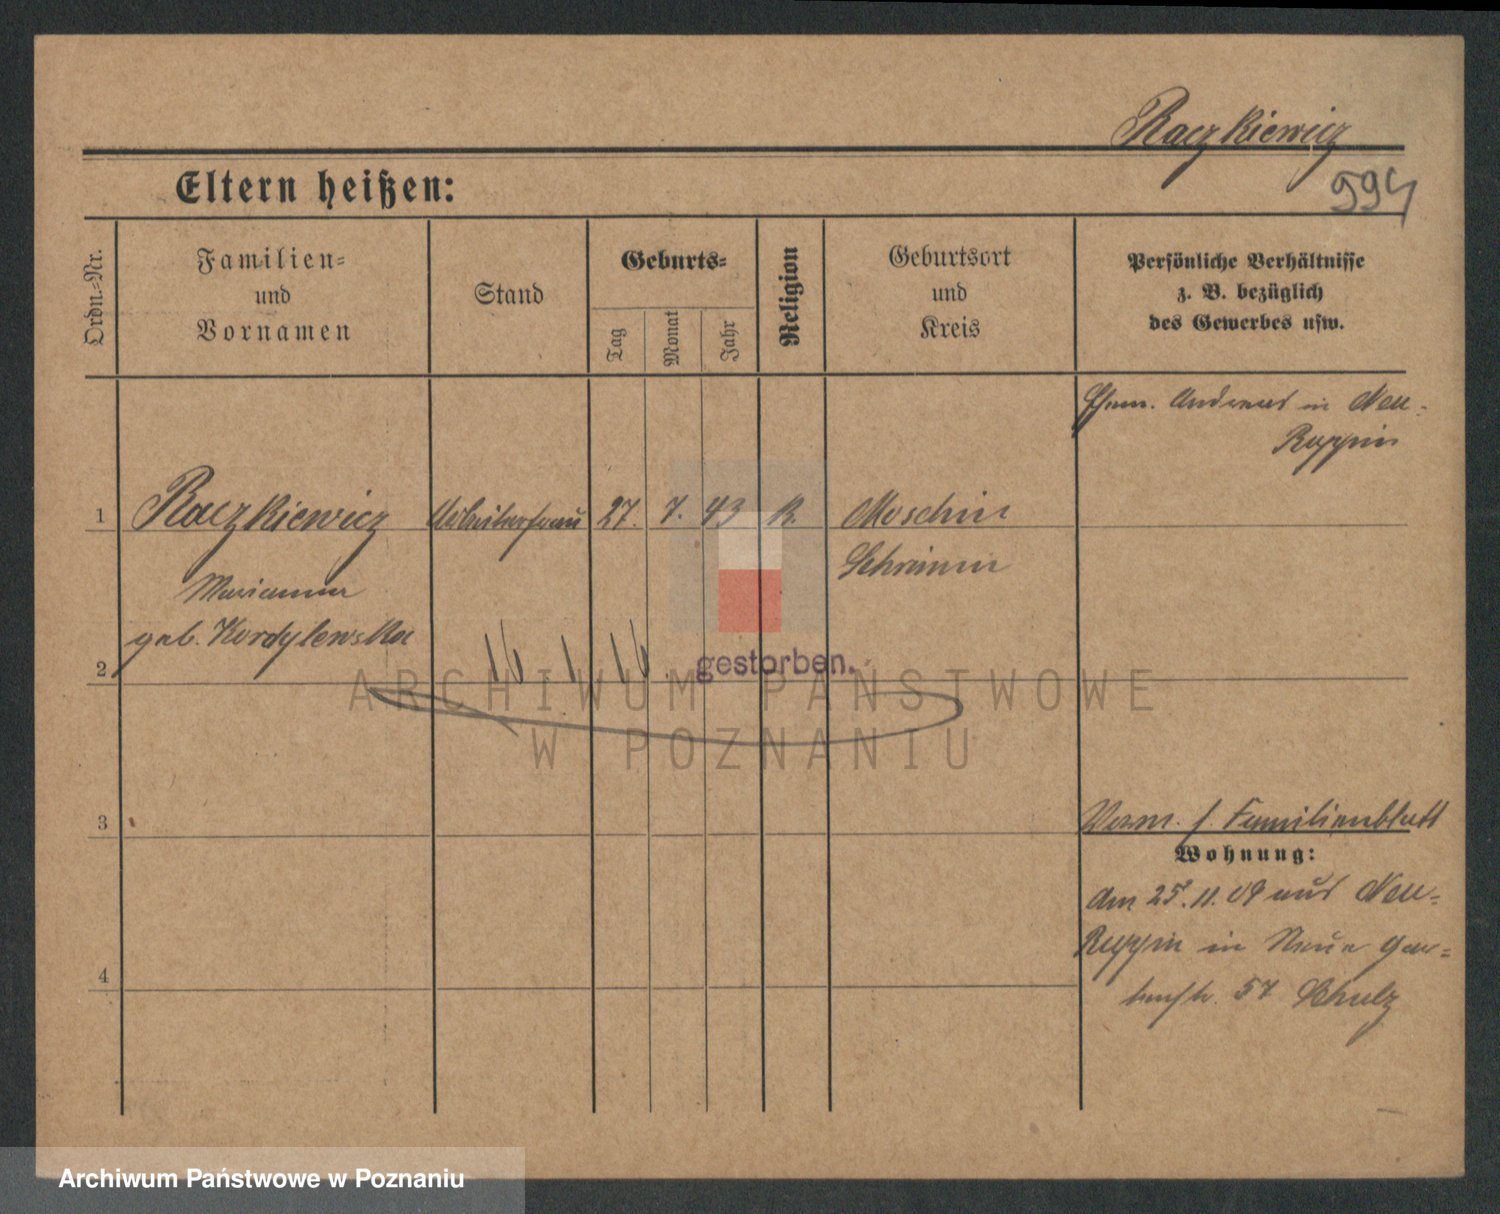 Raczkiewicz
594
Eltern heißen:
Ordn.-Nr.
Familien-
und
Vornamen
Stand
Geburts-
Tag
Monat
Jahr
Religion
Geburtsort
und
Kreis
Persönliche Verhältnisse
z. B. bezüglich
des Gewerbes usw.
Ehem. Andreas in Neu-
Ruppin
1 Raczkiewicz Arbeiterfrau 27. 7. 43 k. Moschin
Schrimm
Marianna
geb. Kordylewska
2 16 1 16 gestorben.
ARCHIWUM PAŃSTWOWE
W POZNANIU
3 Verm. s. Familienblatt
Wohnung:
Am 25.11.09 aus Neu-
Ruppin in Neue Gar-
4 tenstr. 57 Schulz
Archiwum Państwowe w Poznaniu